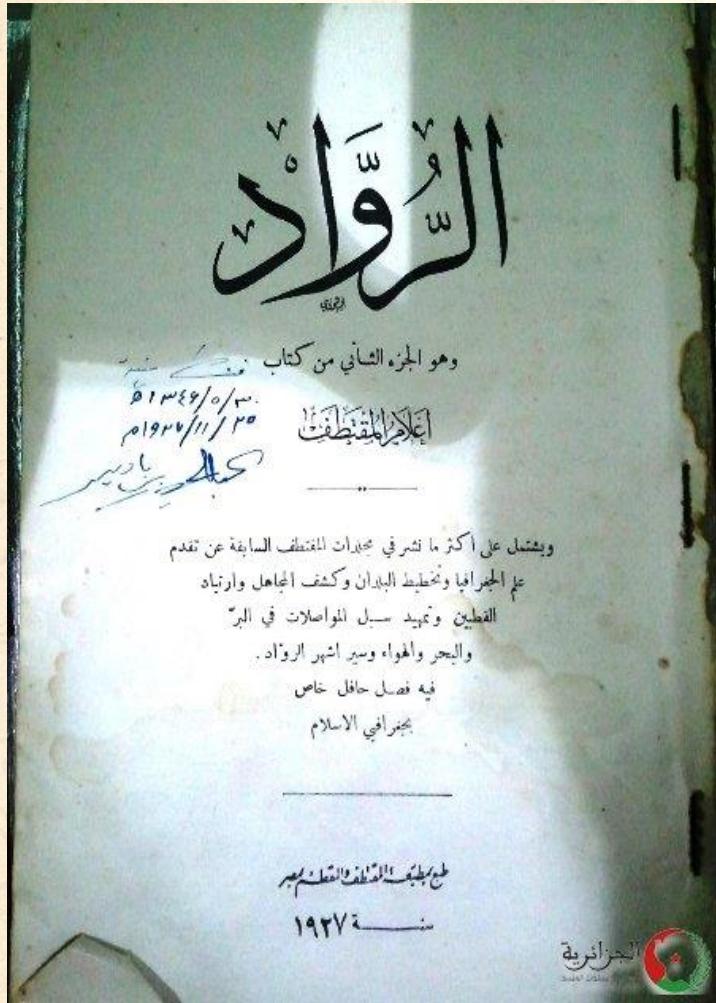 الرُّوَّادْ
وهو الجزء الثاني من كتاب
أعلام المقتطف
قسنطينة
٣٠/٥/١٣٤٦ﻫ
٢٥/١١/١٩٢٧م
عبد الحميد بن باديس
ويشتمل على أكثر ما نشر في مجلدات المقتطف السابقة عن تقدم
علم الجغرافيا وتخطيط البلدان وكشف المجاهل وارتياد
القطبين وتمهيد سبل المواصلات في البرّ
والبحر والهواء وسير اشهر الروّاد.
فيه فصل حافل خاص
بجغرافيي الاسلام
طبع بمطبعة المقتطف والمقطم بمصر
سنة ١٩٢٧
الجزائرية